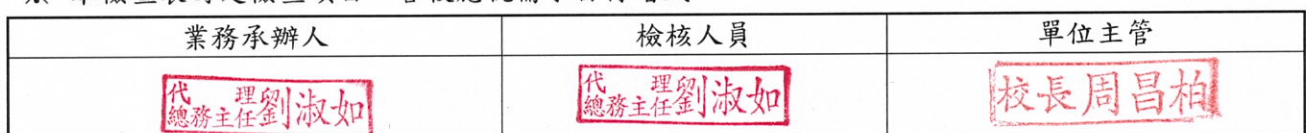 業務承辦人 檢核人員 單位主管
代理總務主任劉淑如 代理總務主任劉淑如 校長周昌柏